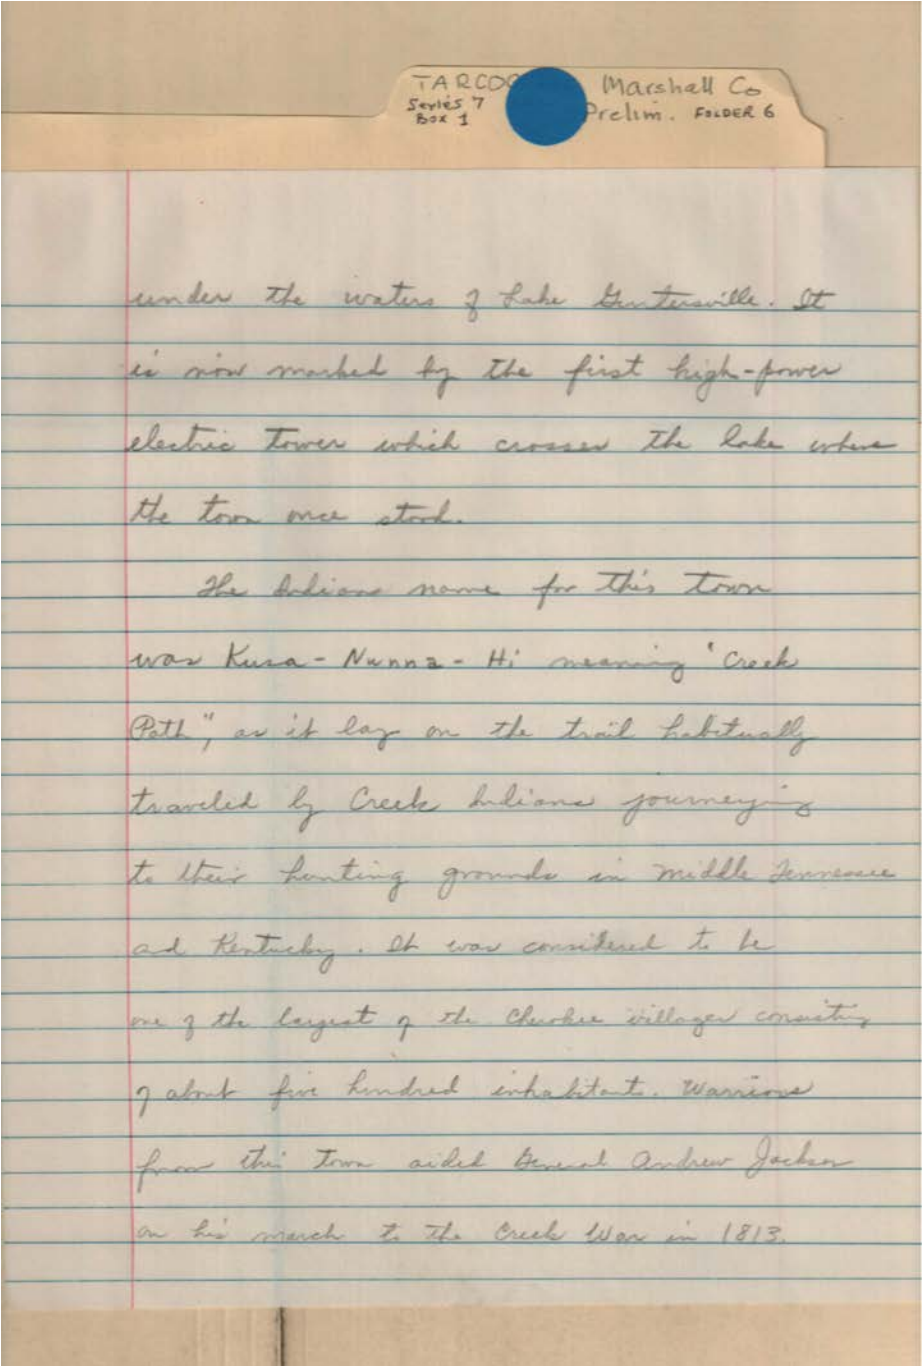 TARCOG Marshall Co
Series 7 Prelim. FOLDER 6
Box 1
under the waters of Lake Guntersville. It
is now marked by the first high-power
electric tower which crosses the lake where
the town once stood.
The Indians name for this town
was Kusa-Nunna-Hi meaning "Creek
Path", as it lay on the trail habitually
traveled by Creek Indians journeying
to their hunting grounds in middle Tennessee
ad Kentucky. It was considered to be
one of the largest of the Cherokee villages consisting
of about five hundred inhabitants. Warriors
from this town aided General Andrew Jackson
on his march to the Creek War in 1813.